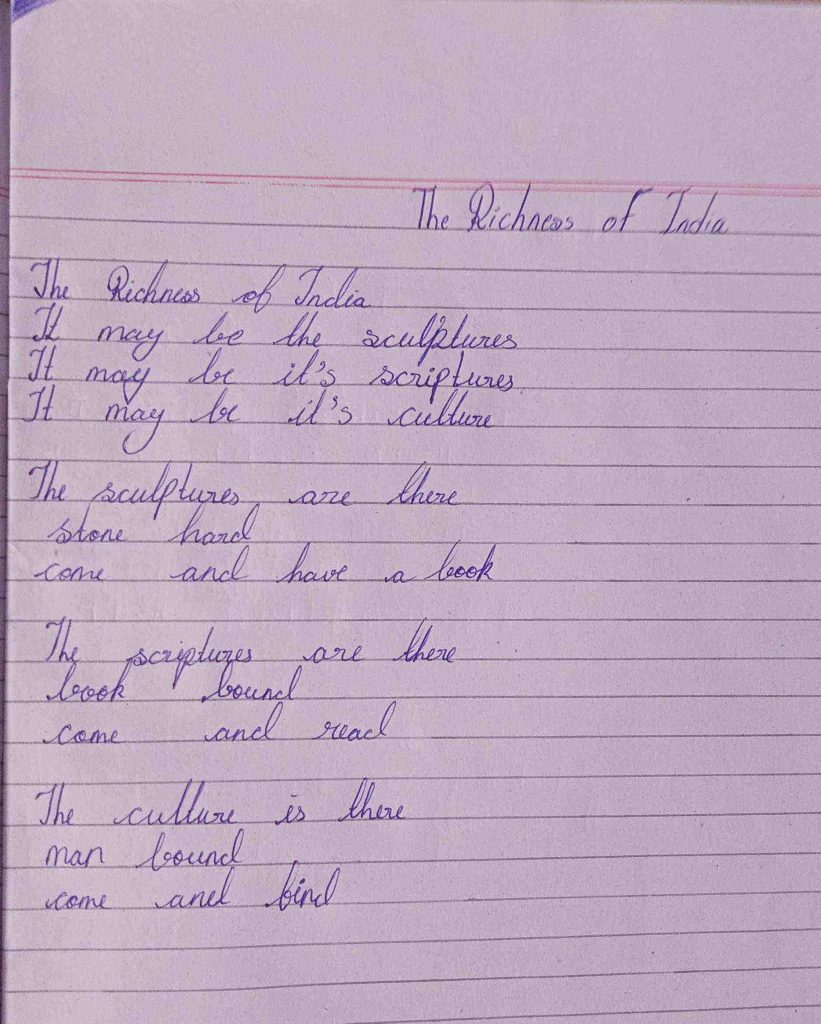 The Richness of India
The Richness of India
It may be the sculptures
It may be it's scriptures
It may be it's culture
The sculptures are there
stone hard
come and have a book
The scriptures are there
book bound
come and read
The culture is there
man bound
come and bind